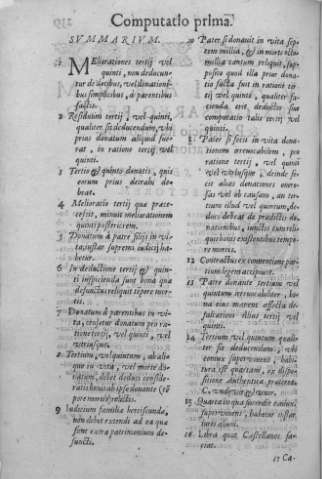 Computatio prima.
SVMMARIVM.
1 MEliorationes tertij vel
quinti, non deducun-
tur de dotibus, vel donationi-
bus simplicibus, à parentibus
factis.
2 Residuum tertij vel quinti,
qualiter sit deducendum, vbi
prius donatum aliquid fue-
rat, in ratione tertij, vel
quinti.
3 Tertio & quinto donatis, quid
eorum prius detrahi de-
beat.
4 Melioratio tertij quæ præce-
cessit, minuit meliorationem
quinti posteriorem.
5 Donatum à patre filijs in vi-
ta, instar supremi iudicij ha-
betur.
6 In deductione tertij & quin-
ti inspicienda sunt bona quæ
defunctus reliquit tempore mor-
tis.
7 Donatum à parentibus in vi-
ta, videtur donatum pro ra-
tione tertij, vel quinti, vel
vtriusque.
8 Tertium, vel quintum, ab ali-
quo in vita, vel morte do-
natum, debet deduci conside-
ratis bonis ab ipso donante
pore mortis relictis.
9 Iudicium familiæ herciscundæ,
non debet extendi ad ea quæ
sunt extra patrimonium de-
functi.
10 Pater si donauit in vita sep-
tem millia, & in morte octo
millia tantum reliquit, sup-
posito quod illa prior dona-
tio facta fuit in ratione ter-
tij vel quinti, qualiter fa-
cienda erit deductio seu
computatio talis tertij vel
quinti.
11 Pater si fecit in vita dona-
tionem irreuocabilem, pro
ratione tertij, vel quinti
vel vtriusque, deinde fe-
cit alias donationes onero-
sas vel ob causam, an ter-
tium illud vel quintum, de-
duci debeat de prædictis do-
nationibus, iunctis futuris reli-
quis bonis existentibus tempo-
re mortis.
12 Contractus ex conuentione par-
tium legem accipiunt.
13 Patre donante tertium vel
quintum irreuocabiliter, bo-
na eius manent affecta de-
ductioni illius tertij vel
quinti.
14 Tertium vel quintum quali-
ter sit deducendum, vbi
coniux superuenit, habi-
tura in quartam, ex dispo-
sitione authenticæ præterea
C. vnde vir & vxor.
15 Quarta in qua succedit coniux
superuenient, habetur instar
iuris alieni.
16 Libra quæ Castellanos fa-
ciat.
17 Ca-